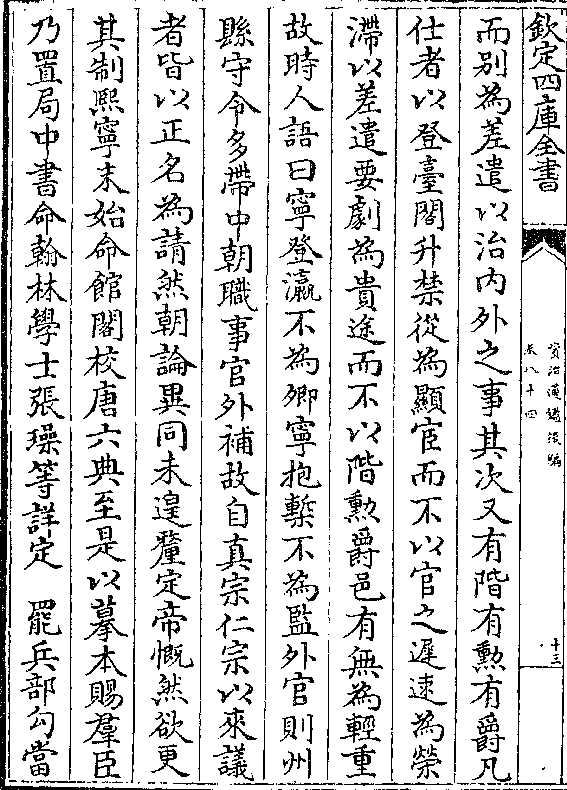 欽定四庫全書
資治通鑑後編
卷八十四
十三
而别為差遣以治内外之事其次又有階有勲有爵凡
仕者以登臺閣升禁從為顯宦而不以官之遲速為榮
滯以差遣要劇為貴途而不以階勲爵邑有無為輕重
故時人語曰寧登瀛不為卿寧抱槧不為監外官則州
縣守令多帶中朝職事官外補故自真宗仁宗以來議
者皆以正名為請然朝論異同未遑釐定帝慨然欲更
其制熙寧末始命館閣校唐六典至是以摹本賜羣臣
乃置局中書命翰林學士張璪等詳定　罷兵部勾當